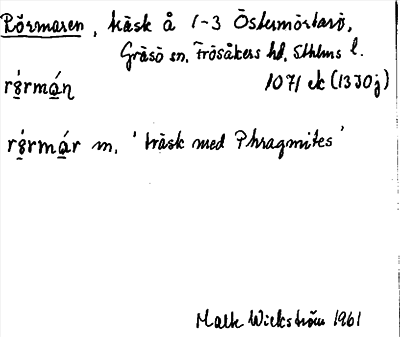 Rörmaren, träsk å 1-3 Östermörtarö,
Gräsö sn, Frösåkers hd, Sthlms l.
rǿrmán̥ 1071 ek (13J0j)
rǿrmár m, 'träsk med Phragmites'
Wickström 1961